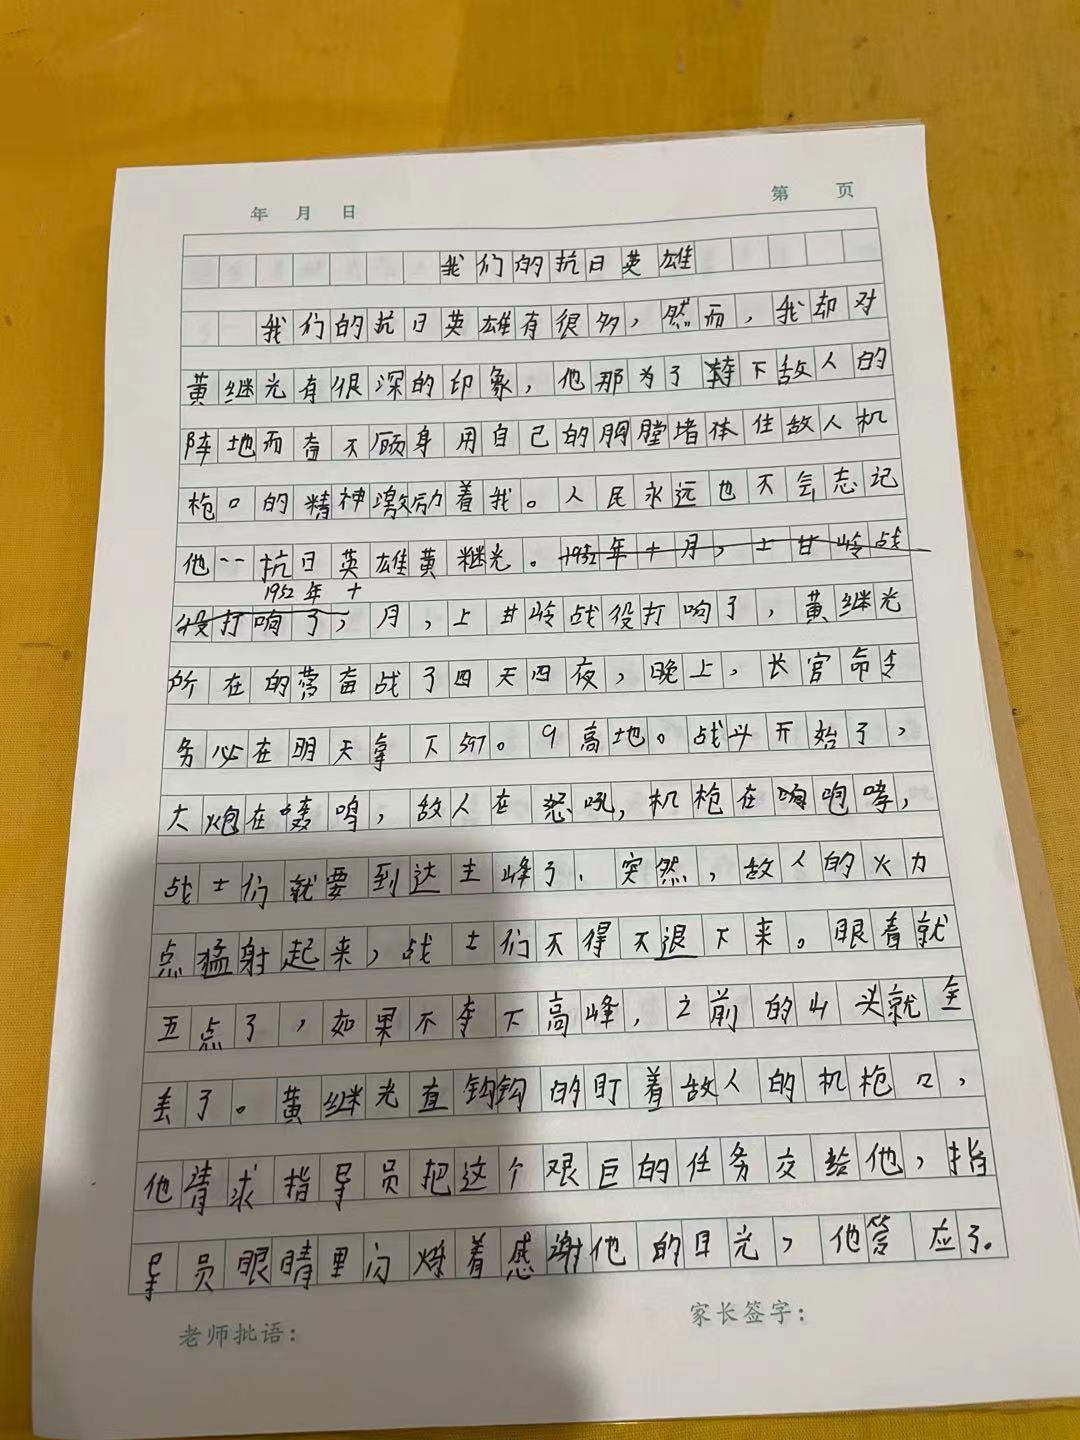 年 月 日 第 页
我们的抗日英雄
我们的抗日英雄有很多，然而，我却对
黄继光有很深的印象，他那为了夺下敌人的
阵地而奋不顾身用自己的胸膛堵体住敌人机
枪口的精神激励着我。人民永远也不会忘记
他--抗日英雄黄继光。1952年十月，上甘岭战
1952年十
役打响了，月，上甘岭战役打响了，黄继光
所在的营奋战了四天四夜，晚上，长官命令
务必在明天拿下597。9高地。战斗开始了，
大炮在轰鸣，敌人在怒吼，机枪在咆哮，
战士们就要到达主峰了、突然，敌人的火力
点猛射起来，战士们不得不退下来。眼看就
五点了，如果不拿下高峰，之前的山头就全
丢了。黄继光直钩钩的盯着敌人的机枪口，
他请求指导员把这个艰巨的任务交给他，指
导员眼睛里闪烁着感谢他的目光，他答应了。
老师批语：
家长签字：